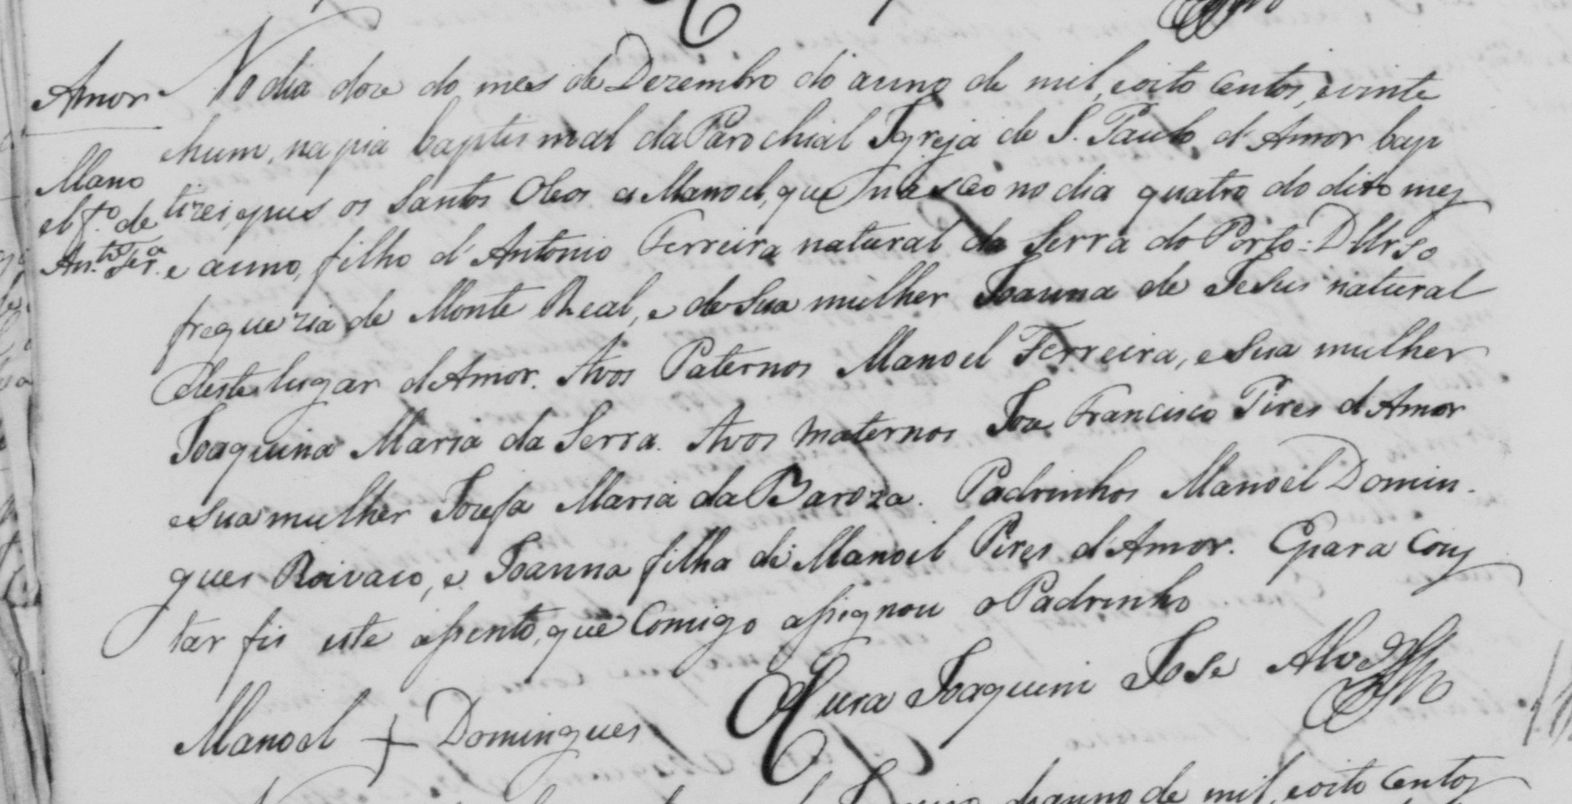 Amor
Mano
el f.º de
An.to Fer.a
No dia doze do mes de Dezembro do anno de mil, e oito centos, e vinte
e hum, na pia baptismal da Parochial Igreja de S. Paulo d'Amor bap
tizei, e pus os Santos Oleos a Manoel, que nasceo no dia quatro do dito mez
e anno, filho d'Antonio Ferreira natural da Serra do Porto: D'Urso
freguezia de Monte Real, e de Sua mulher Joanna de Jesus natural
deste lugar d'Amor. Avos Paternos Manoel Ferreira, e Sua mulher
Joaquina Maria da Serra. Avos maternos Joze Francisco Pires d'Amor
e Sua mulher Josefa Maria da Baroza. Padrinhos Manoel Domin
gues Roivaco, e Joanna filha de Manoel Pires d'Amor. E para cons
tar fis este assento, que Comigo assignou o Padrinho
O Cura Joaquim Jose Alvez
Manoel + Domingues
anno de mil, e oito centos